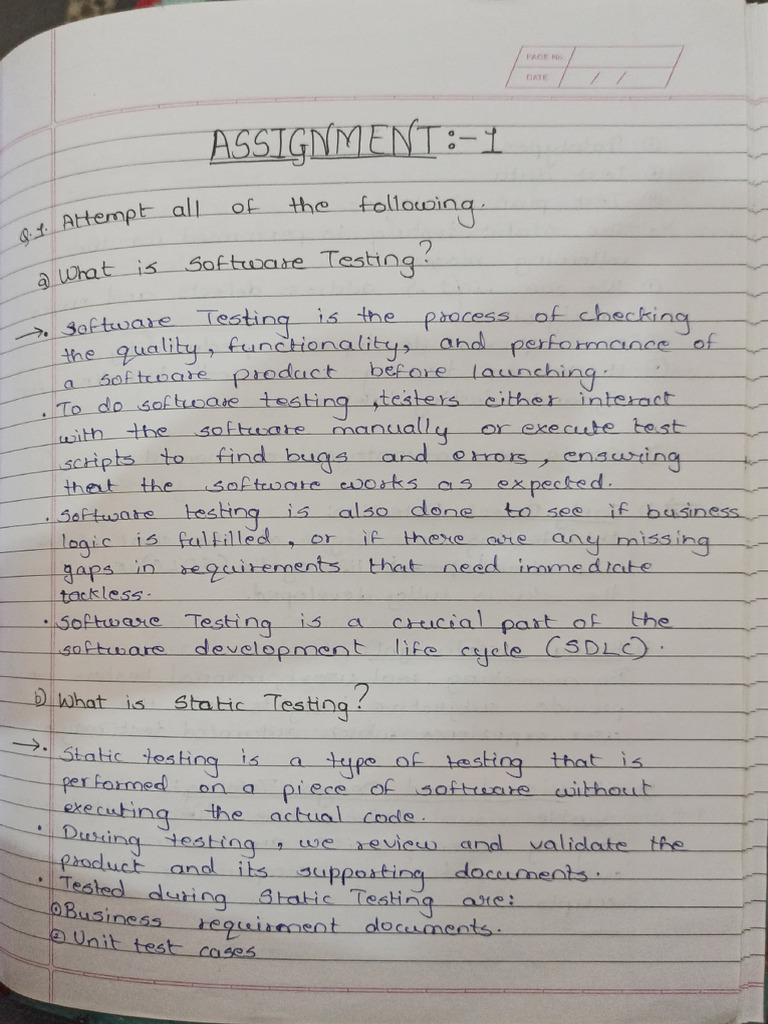 PAGE No.
DATE / /
ASSIGNMENT:-1
Q.1. Attempt all of the following.
a) What is Software Testing?
→. Software Testing is the process of checking
the quality, functionality, and performance of
a software product before launching.
. To do software testing, testers either interact
with the software manually or execute test
scripts to find bugs and errors, ensuring
that the software works as expected.
. Software testing is also done to see if business
logic is fulfilled, or if there are any missing
gaps in requirements that need immediate
tackless.
. Software Testing is a crucial part of the
software development life cycle (SDLC).
b) What is Static Testing?
→. Static testing is a type of testing that is
performed on a piece of software without
executing the actual code.
. During testing, we review and validate the
product and its supporting documents.
. Tested during Static Testing are:
① Business requirment documents.
② Unit test cases